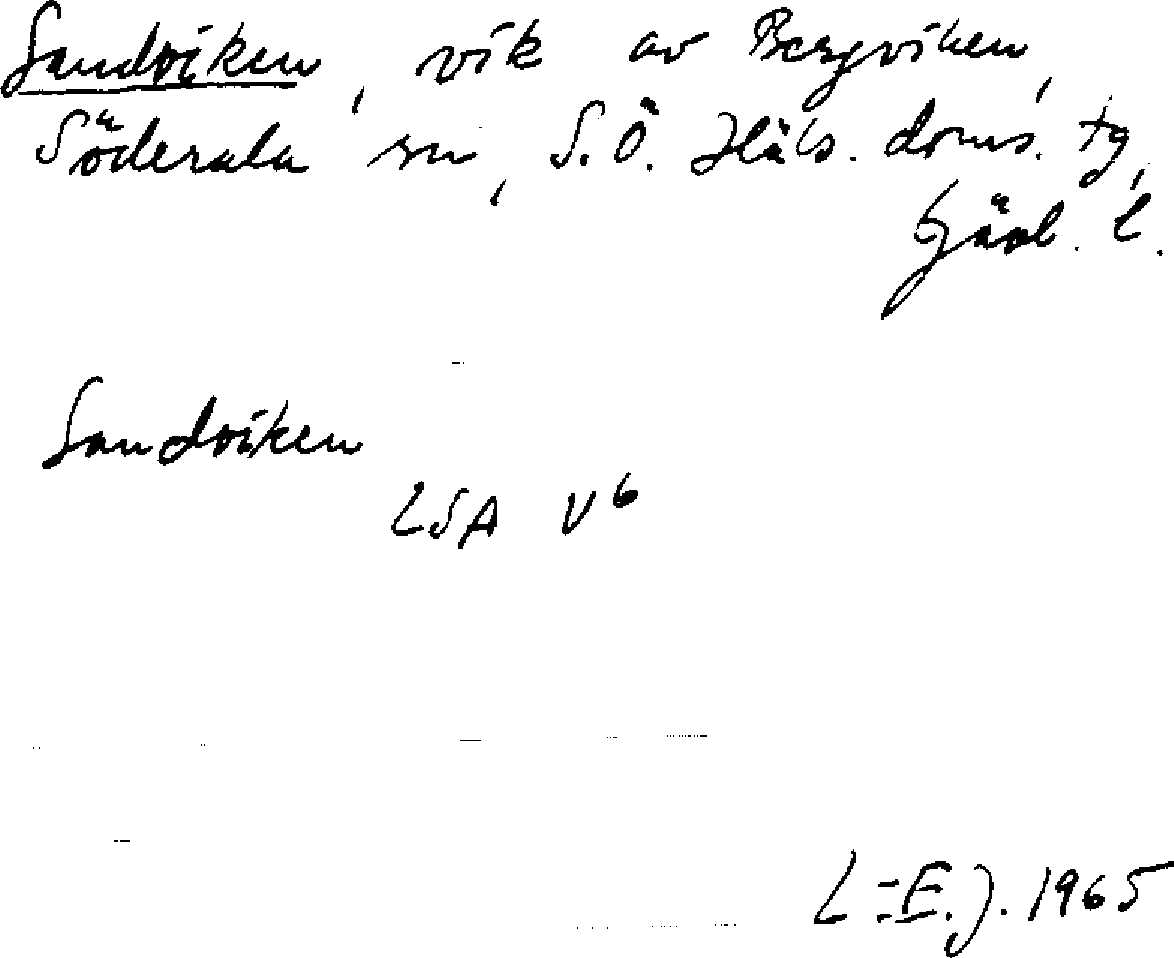 Sandviken, vik av Bergviken,
Söderala sn, S.Ö. Häls. doms. tg,
Gävl. l.
Sandviken
LSA V6
L-E.J. 1965